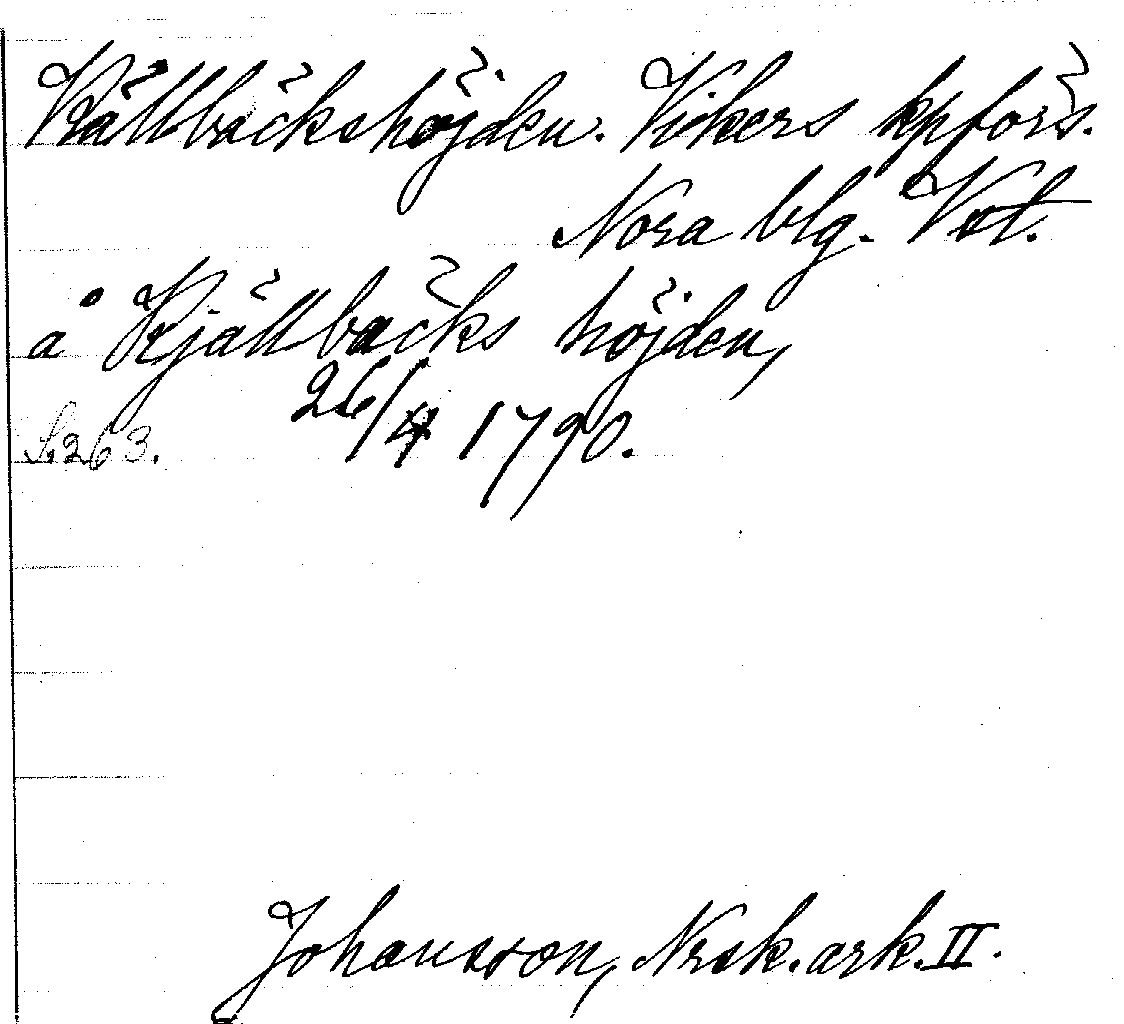 Källbäckshöjden. Vikers kpförs.
Nora blg. Vstm.
å Kjällbäcks höjden,
26/4 1790.
S. 263.
Johansson, Nrsk. ark. II.